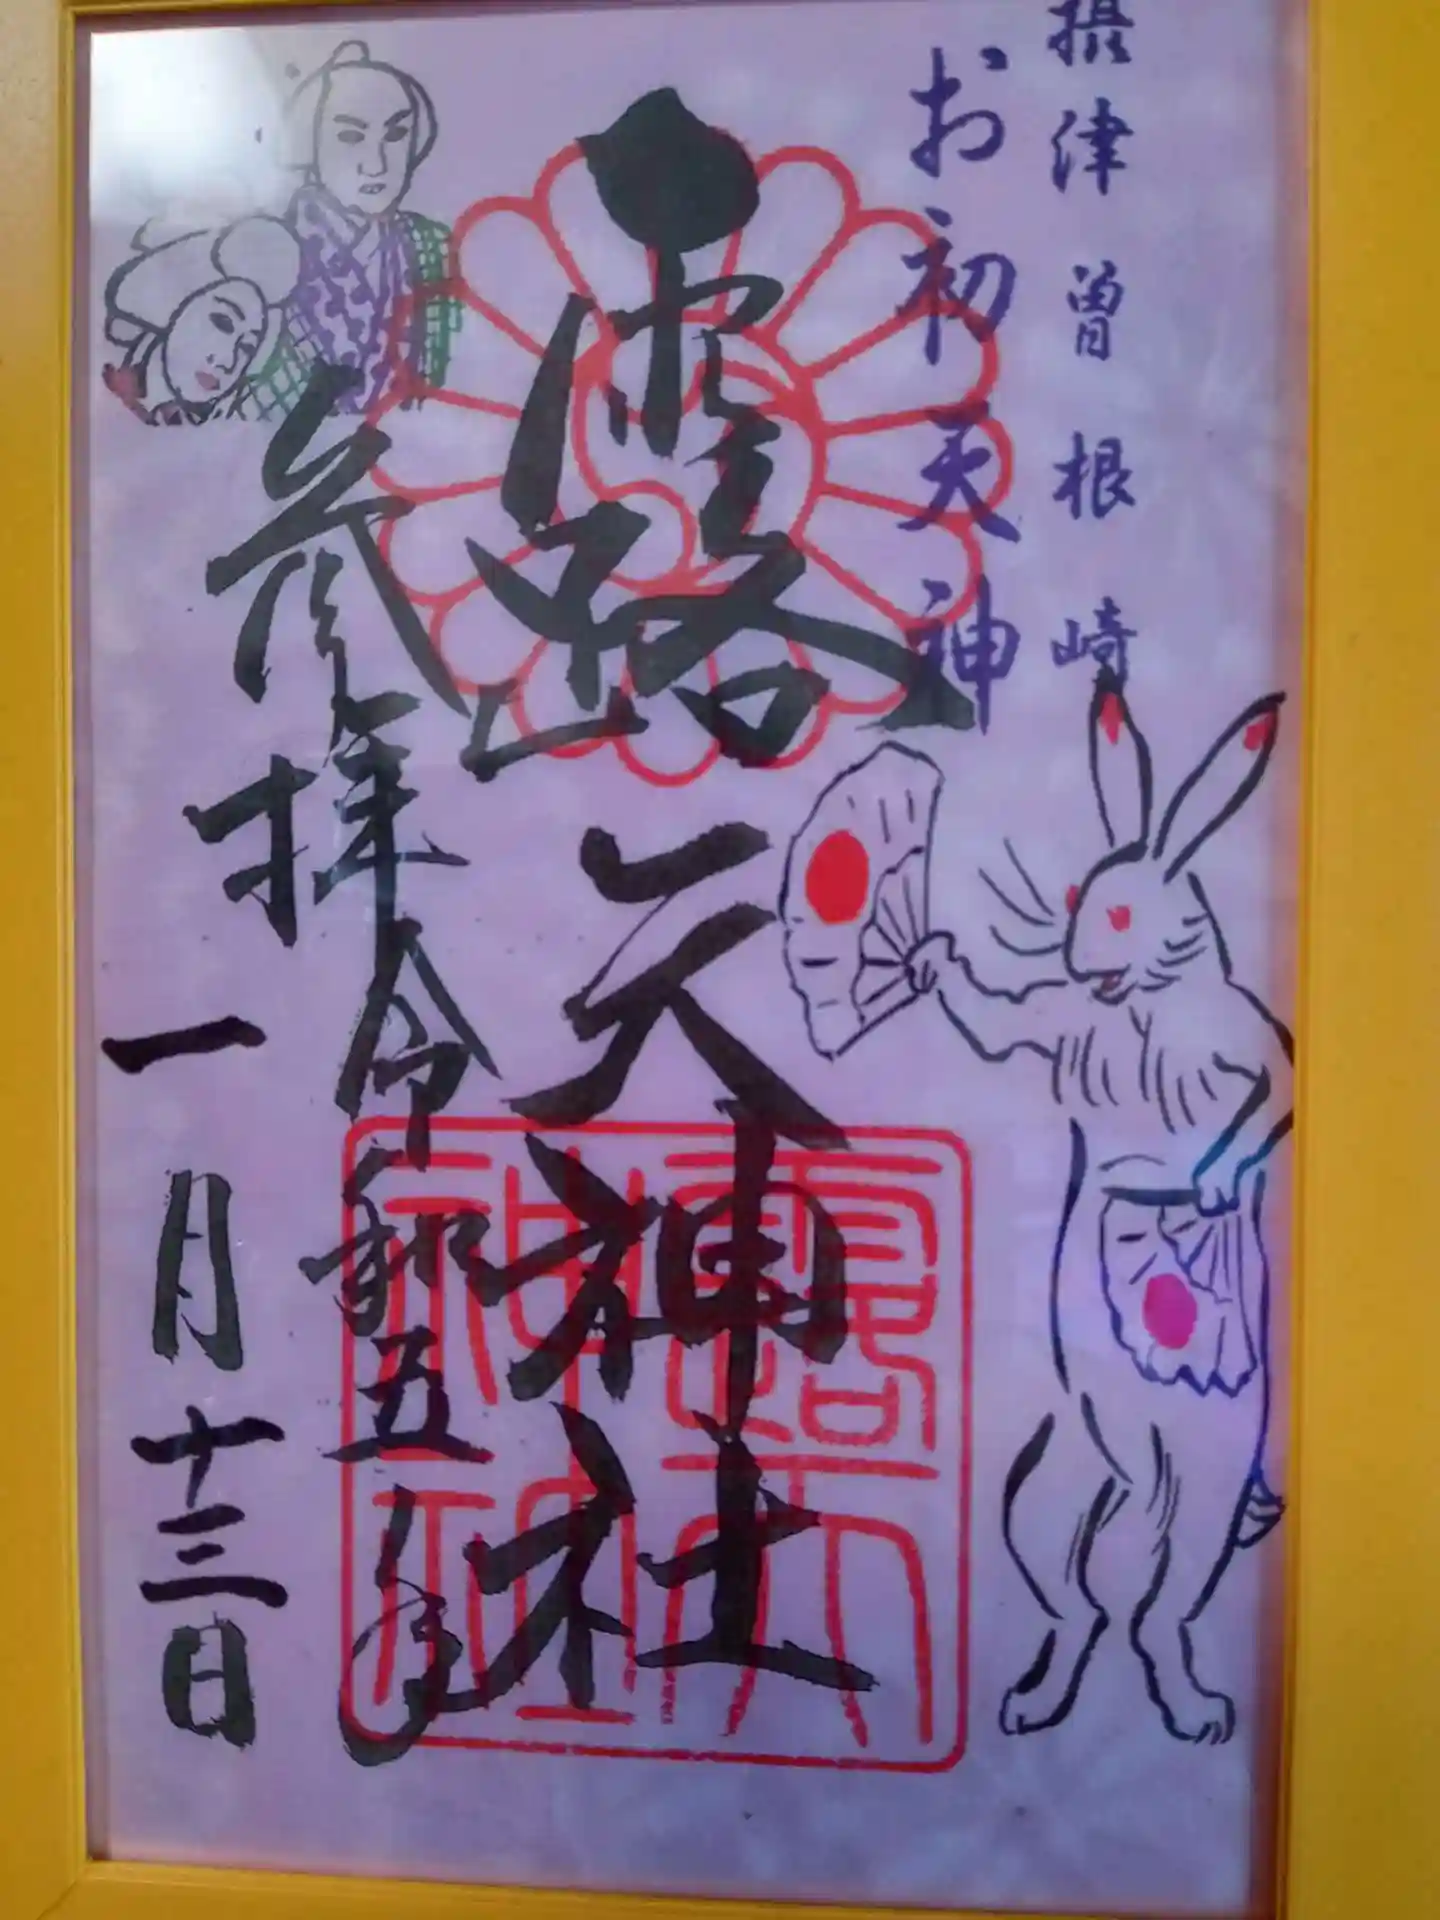 摂津曽根崎
お初天神
露天神社
参拝令和五年
一月十三日
露天
神社